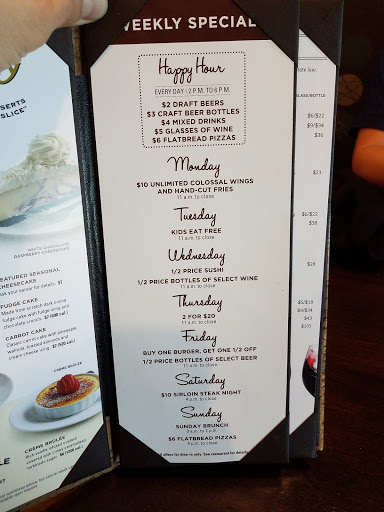 WEEKLY SPECIAL
Happy Hour
EVERY DAY | 2 P.M. TO 6 P.M.
$2 DRAFT BEERS
$3 CRAFT BEER BOTTLES
$4 MIXED DRINKS
$5 GLASSES OF WINE
$6 FLATBREAD PIZZAS
Monday
$10 UNLIMITED COLOSSAL WINGS
AND HAND-CUT FRIES
11 a.m. to close
Tuesday
KIDS EAT FREE
11 a.m. to close
Wednesday
1/2 PRICE SUSHI
1/2 PRICE BOTTLES OF SELECT WINE
11 a.m. to close
Thursday
2 FOR $20
11 a.m. to close
Friday
BUY ONE BURGER, GET ONE 1/2 OFF
1/2 PRICE BOTTLES OF SELECT BEER
11 a.m. to close
Saturday
$10 SIRLOIN STEAK NIGHT
4 p.m. to close
Sunday
SUNDAY BRUNCH
$6 FLATBREAD PIZZAS
4 p.m. to close
offers for dine-in only. See restaurant for details
SSERTS
SLICE
WHITE CHOCOLATE
RASPBERRY CHEESECAKE
EATURED SEASONAL
CHEESECAKE
FUDGE CAKE
CARROT CAKE
CRÈME BRÛLÉE
CRÈME BRÛLÉE
GLASS/BOTTLE
$6/$22
$9/$34
$36
$23
$6/$22
$38
$28
$6/$18
$9/$34
$43
$105